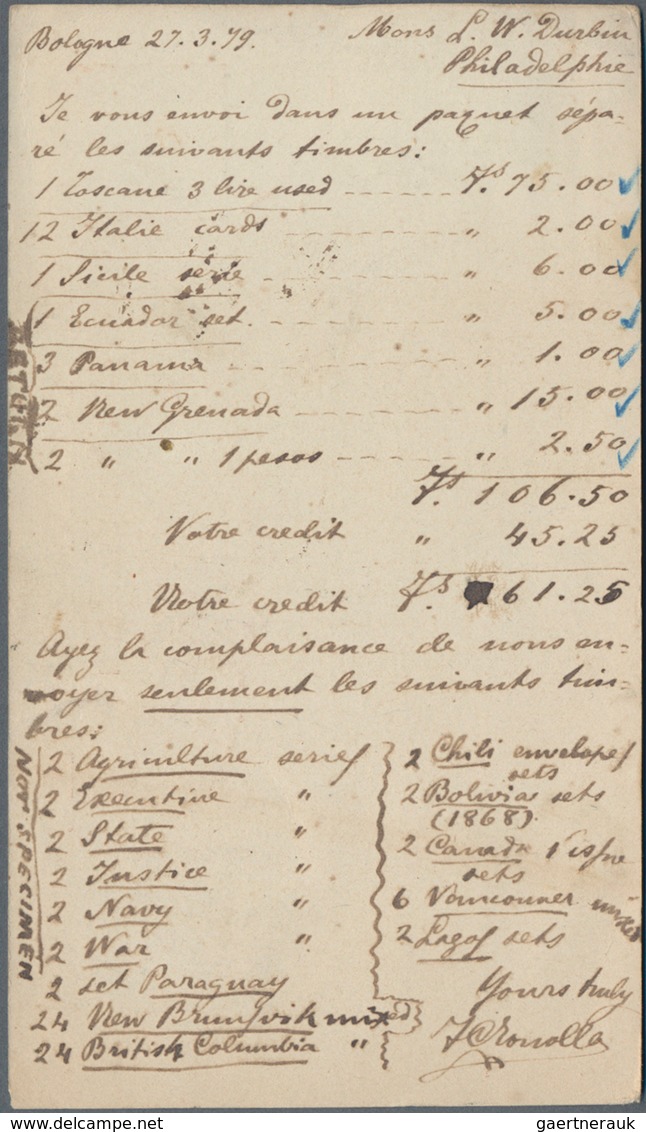 Bologne 27.3.79.
Mons L. W. Durbin
Philadelphie
Je vous envoi dans un paquet sépa-
ré les suivants timbres:
1 Toscane 3 lire used ----- Fs. 75.00
12 Italie cards ----- " 2.00
1 Sicile serie ----- " 6.00
1 Ecuador set. ----- " 5.00
3 Panama ----- " 1.00
2 New Grenada ----- " 15.00
2 " " 1 pesos ----- " 2.50
Fs. 106.50
Votre credit " 45.25
Notre credit Fs. 61.25
Ayez la complaisance de nous en-
voyer seulement les suivants tim-
bres:
2 Agriculture series
2 Executive "
2 State "
2 Justice "
2 Navy "
2 War "
2 set Paraguay
24 New Brunsvik mixed
24 British Columbia "
2 Chili envelopes
sets
2 Bolivia sets
(1868).
2 Canada 1 issue
sets
6 Vancouver mixed
2 Lagos sets
Yours truly
RETURN
NOT SPECIMEN
www.delcampe.net
gaertnerauk